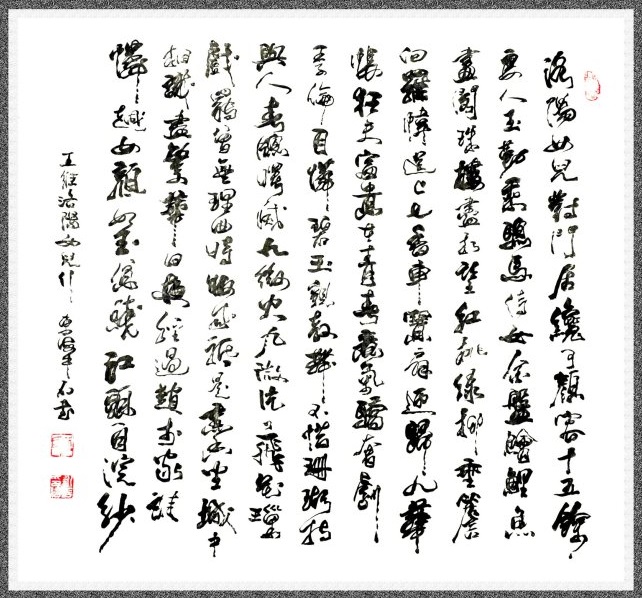 洛陽女兒對門居纔可顏容十五餘
良人玉勒乘驄馬侍女金盤鱠鯉魚
畫閣珠樓盡相望紅桃綠柳垂簷
向羅幃送上七香車寶扇迎歸九華
帳狂夫富貴在青春意氣驕奢劇
季倫自憐碧玉親教舞不惜珊瑚持
與人春窗曙滅九微火九微片片飛花璅
戲罷曾無理曲時妝成祗是熏香坐城中
相識盡繁華日夜經過趙李家誰
憐越女顏如玉貧賤江頭自浣紗
王維洛陽女兒行 書